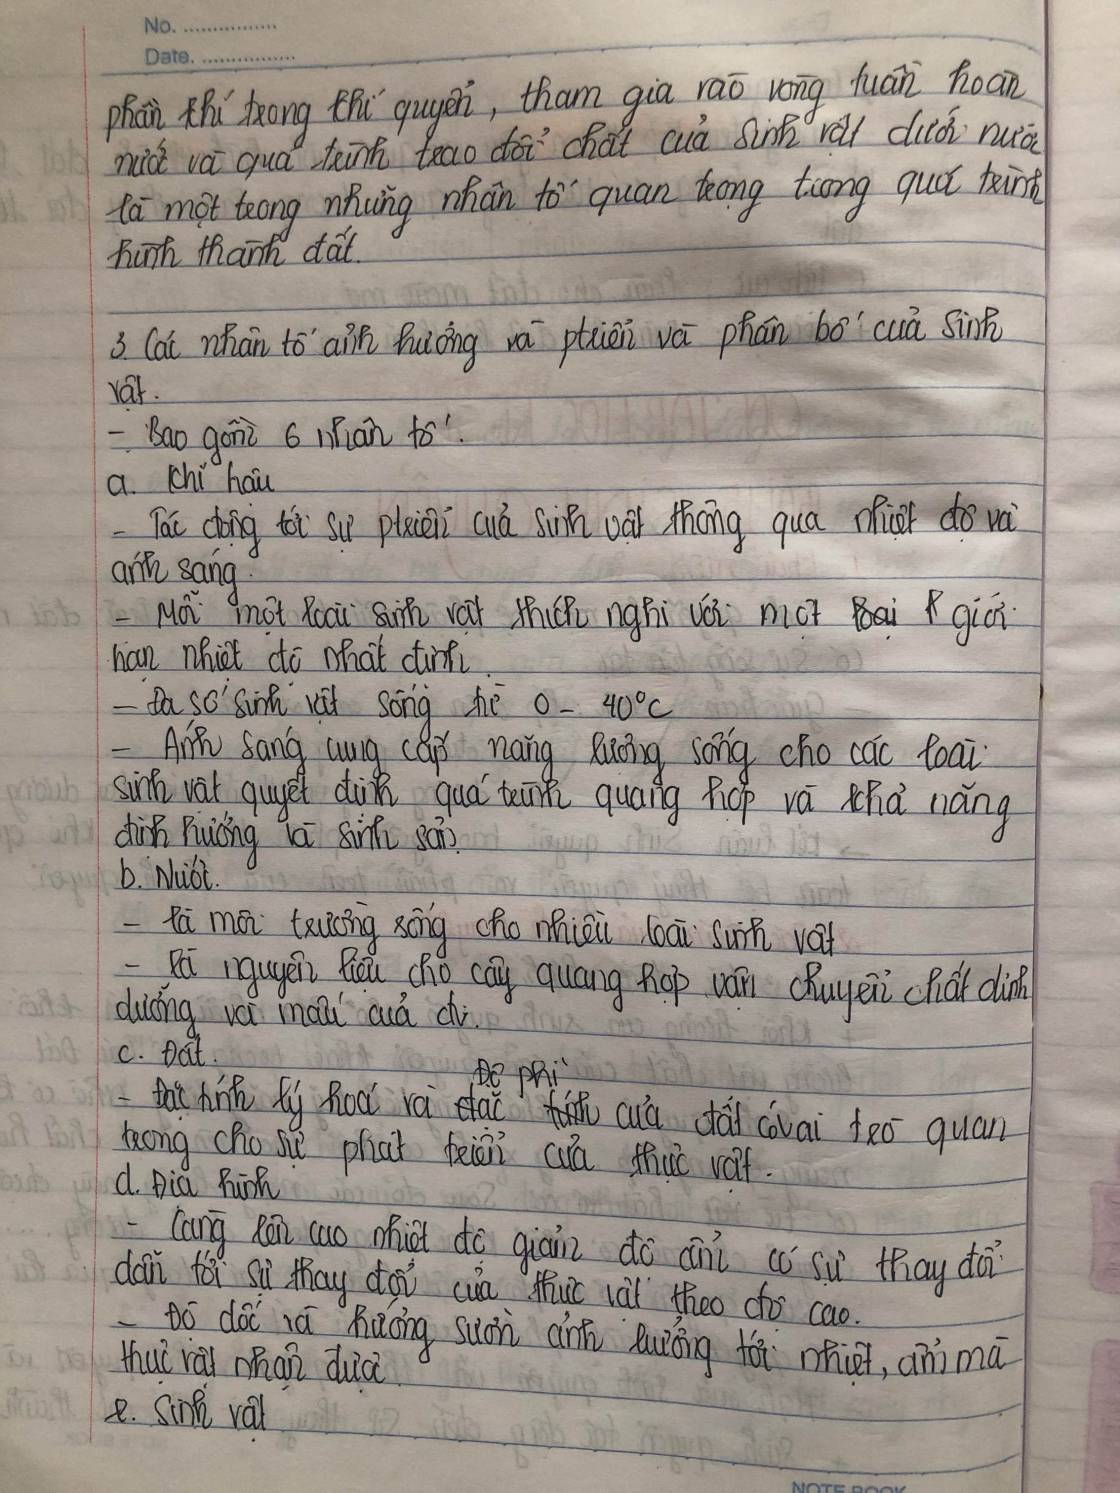 No. ................
Date. ................
phần khí trong khí quyển, tham gia vào vòng tuần hoàn
nước và quá trình trao đổi chất của sinh vật dưới nước
là một trong những nhân tố quan trọng trong quá trình
hình thành đất.
3. Các nhân tố ảnh hưởng và ptriển và phân bố của sinh
vật.
- Bao gồm 6 nhân tố.
a. Khí hậu
- Tác động tới sự ptriển của sinh vật thông qua nhiệt độ và
ánh sáng.
- Mỗi một loài sinh vật thích nghi với một giới
hạn nhiệt độ nhất định.
- Đa số sinh vật sống từ 0 - 40°C
- Ánh sáng cung cấp năng lượng sống cho các loài
sinh vật quyết định quá trình quang hợp và khả năng
định hướng và sinh sản.
b. Nước.
- là môi trường sống cho nhiều loài sinh vật
- Là nguyên liệu cho cây quang hợp vận chuyển chất dinh
dưỡng và máu của đv.
c. Đất.
Độ phì
- Đặc tính lý hoá và của đất có vai trò quan
trọng cho sự phát triển của thực vật.
d. Địa hình
- Càng lên cao nhiệt độ giảm độ ẩm có sự thay đổi
dẫn tới sự thay đổi của thực vật theo độ cao.
- Độ dốc và hướng sườn ảnh hưởng tới nhiệt, ẩm mà
thực vật nhận được.
e. Sinh vật
NOTE BOOK